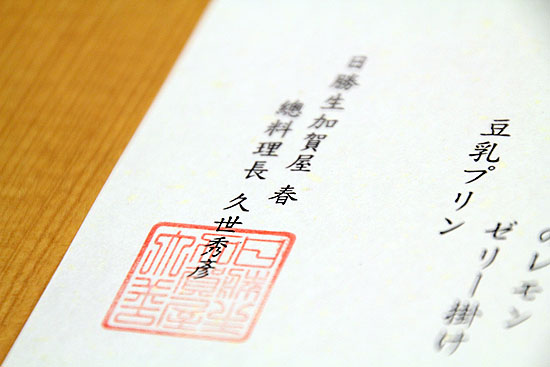 のレモン
ゼリー掛け
豆乳プリン
日勝生加賀屋 春
總料理長 久世秀彦